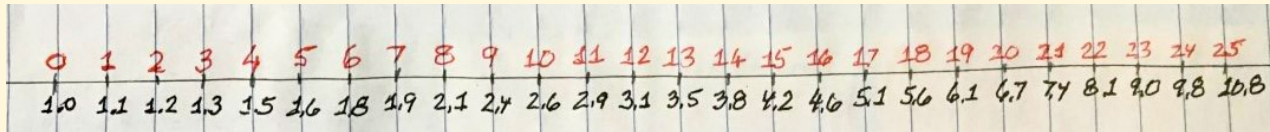 0 1 2 3 4 5 6 7 8 9 10 11 12 13 14 15 16 17 18 19 20 21 22 23 24 25
1.0 1.1 1.2 1.3 1.5 1.6 1.8 1.9 2.1 2.4 2.6 2.9 3.1 3.5 3.8 4.2 4.6 5.1 5.6 6.1 6.7 7.4 8.1 9.0 9.8 10.8